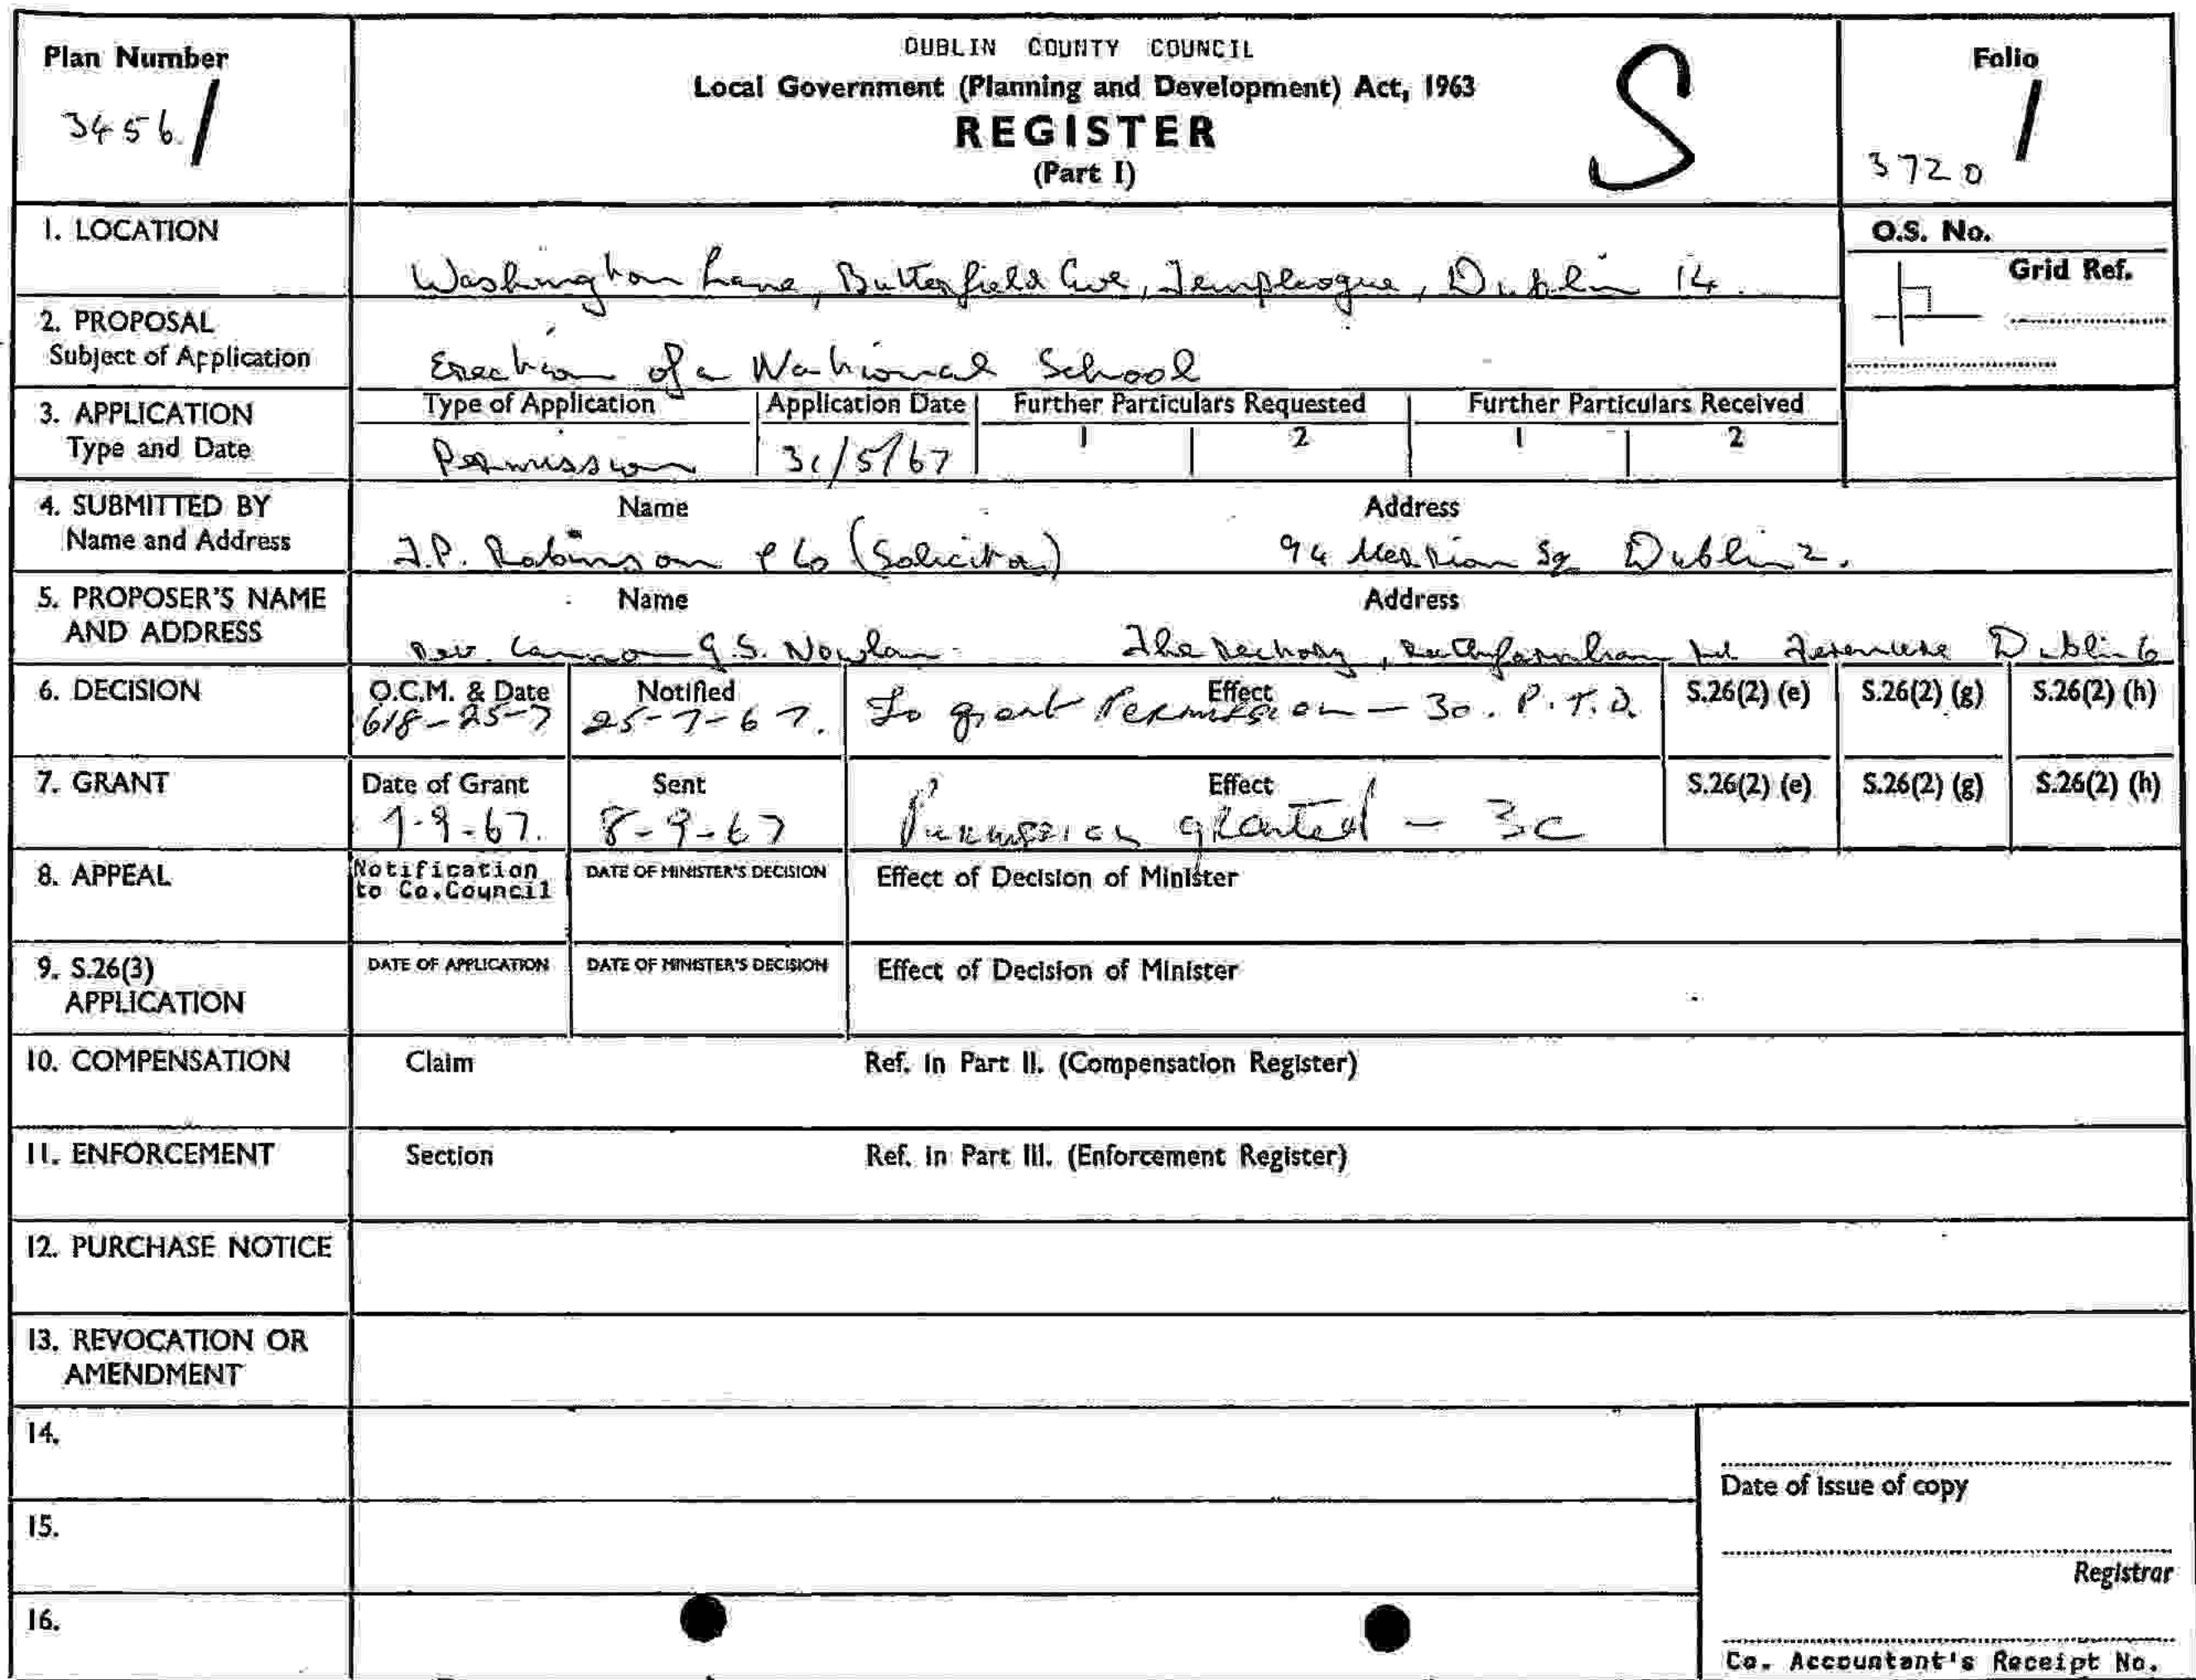 Plan Number
3456/
DUBLIN COUNTY COUNCIL
Local Government (Planning and Development) Act, 1963
REGISTER
(Part I)
S
Folio
/
3720
1. LOCATION
Washington Lane, Butterfield Ave, Templeogue, Dublin 14.
O.S. No.
Grid Ref.
2. PROPOSAL
Subject of Application
Erection of a National School
3. APPLICATION
Type and Date
Type of Application Application Date Further Particulars Requested Further Particulars Received
1 2 1 2
Permission 31/5/67
4. SUBMITTED BY
Name and Address
Name Address
J.P. Robinson & Co (Solicitor) 94 Merrion Sq Dublin 2.
5. PROPOSER'S NAME
AND ADDRESS
Name Address
Rev. Cannon G.S. Nowlan. The Rectory, Rathfarnham Terenure Dublin 6
6. DECISION
O.C.M. & Date Notified Effect S.26(2) (e) S.26(2) (g) S.26(2) (h)
618-25-7 25-7-67. To grant Permission - 3c. P.T.O.
7. GRANT
Date of Grant Sent Effect S.26(2) (e) S.26(2) (g) S.26(2) (h)
7-9-67. 8-9-67 Permission granted - 3c
8. APPEAL
Notification
to Co.Council
DATE OF MINISTER'S DECISION Effect of Decision of Minister
9. S.26(3)
APPLICATION
DATE OF APPLICATION DATE OF MINISTER'S DECISION Effect of Decision of Minister
10. COMPENSATION Claim Ref. in Part II. (Compensation Register)
11. ENFORCEMENT Section Ref. in Part III. (Enforcement Register)
12. PURCHASE NOTICE
13. REVOCATION OR
AMENDMENT
14.
Date of issue of copy
15.
Registrar
16.
Co. Accountant's Receipt No.